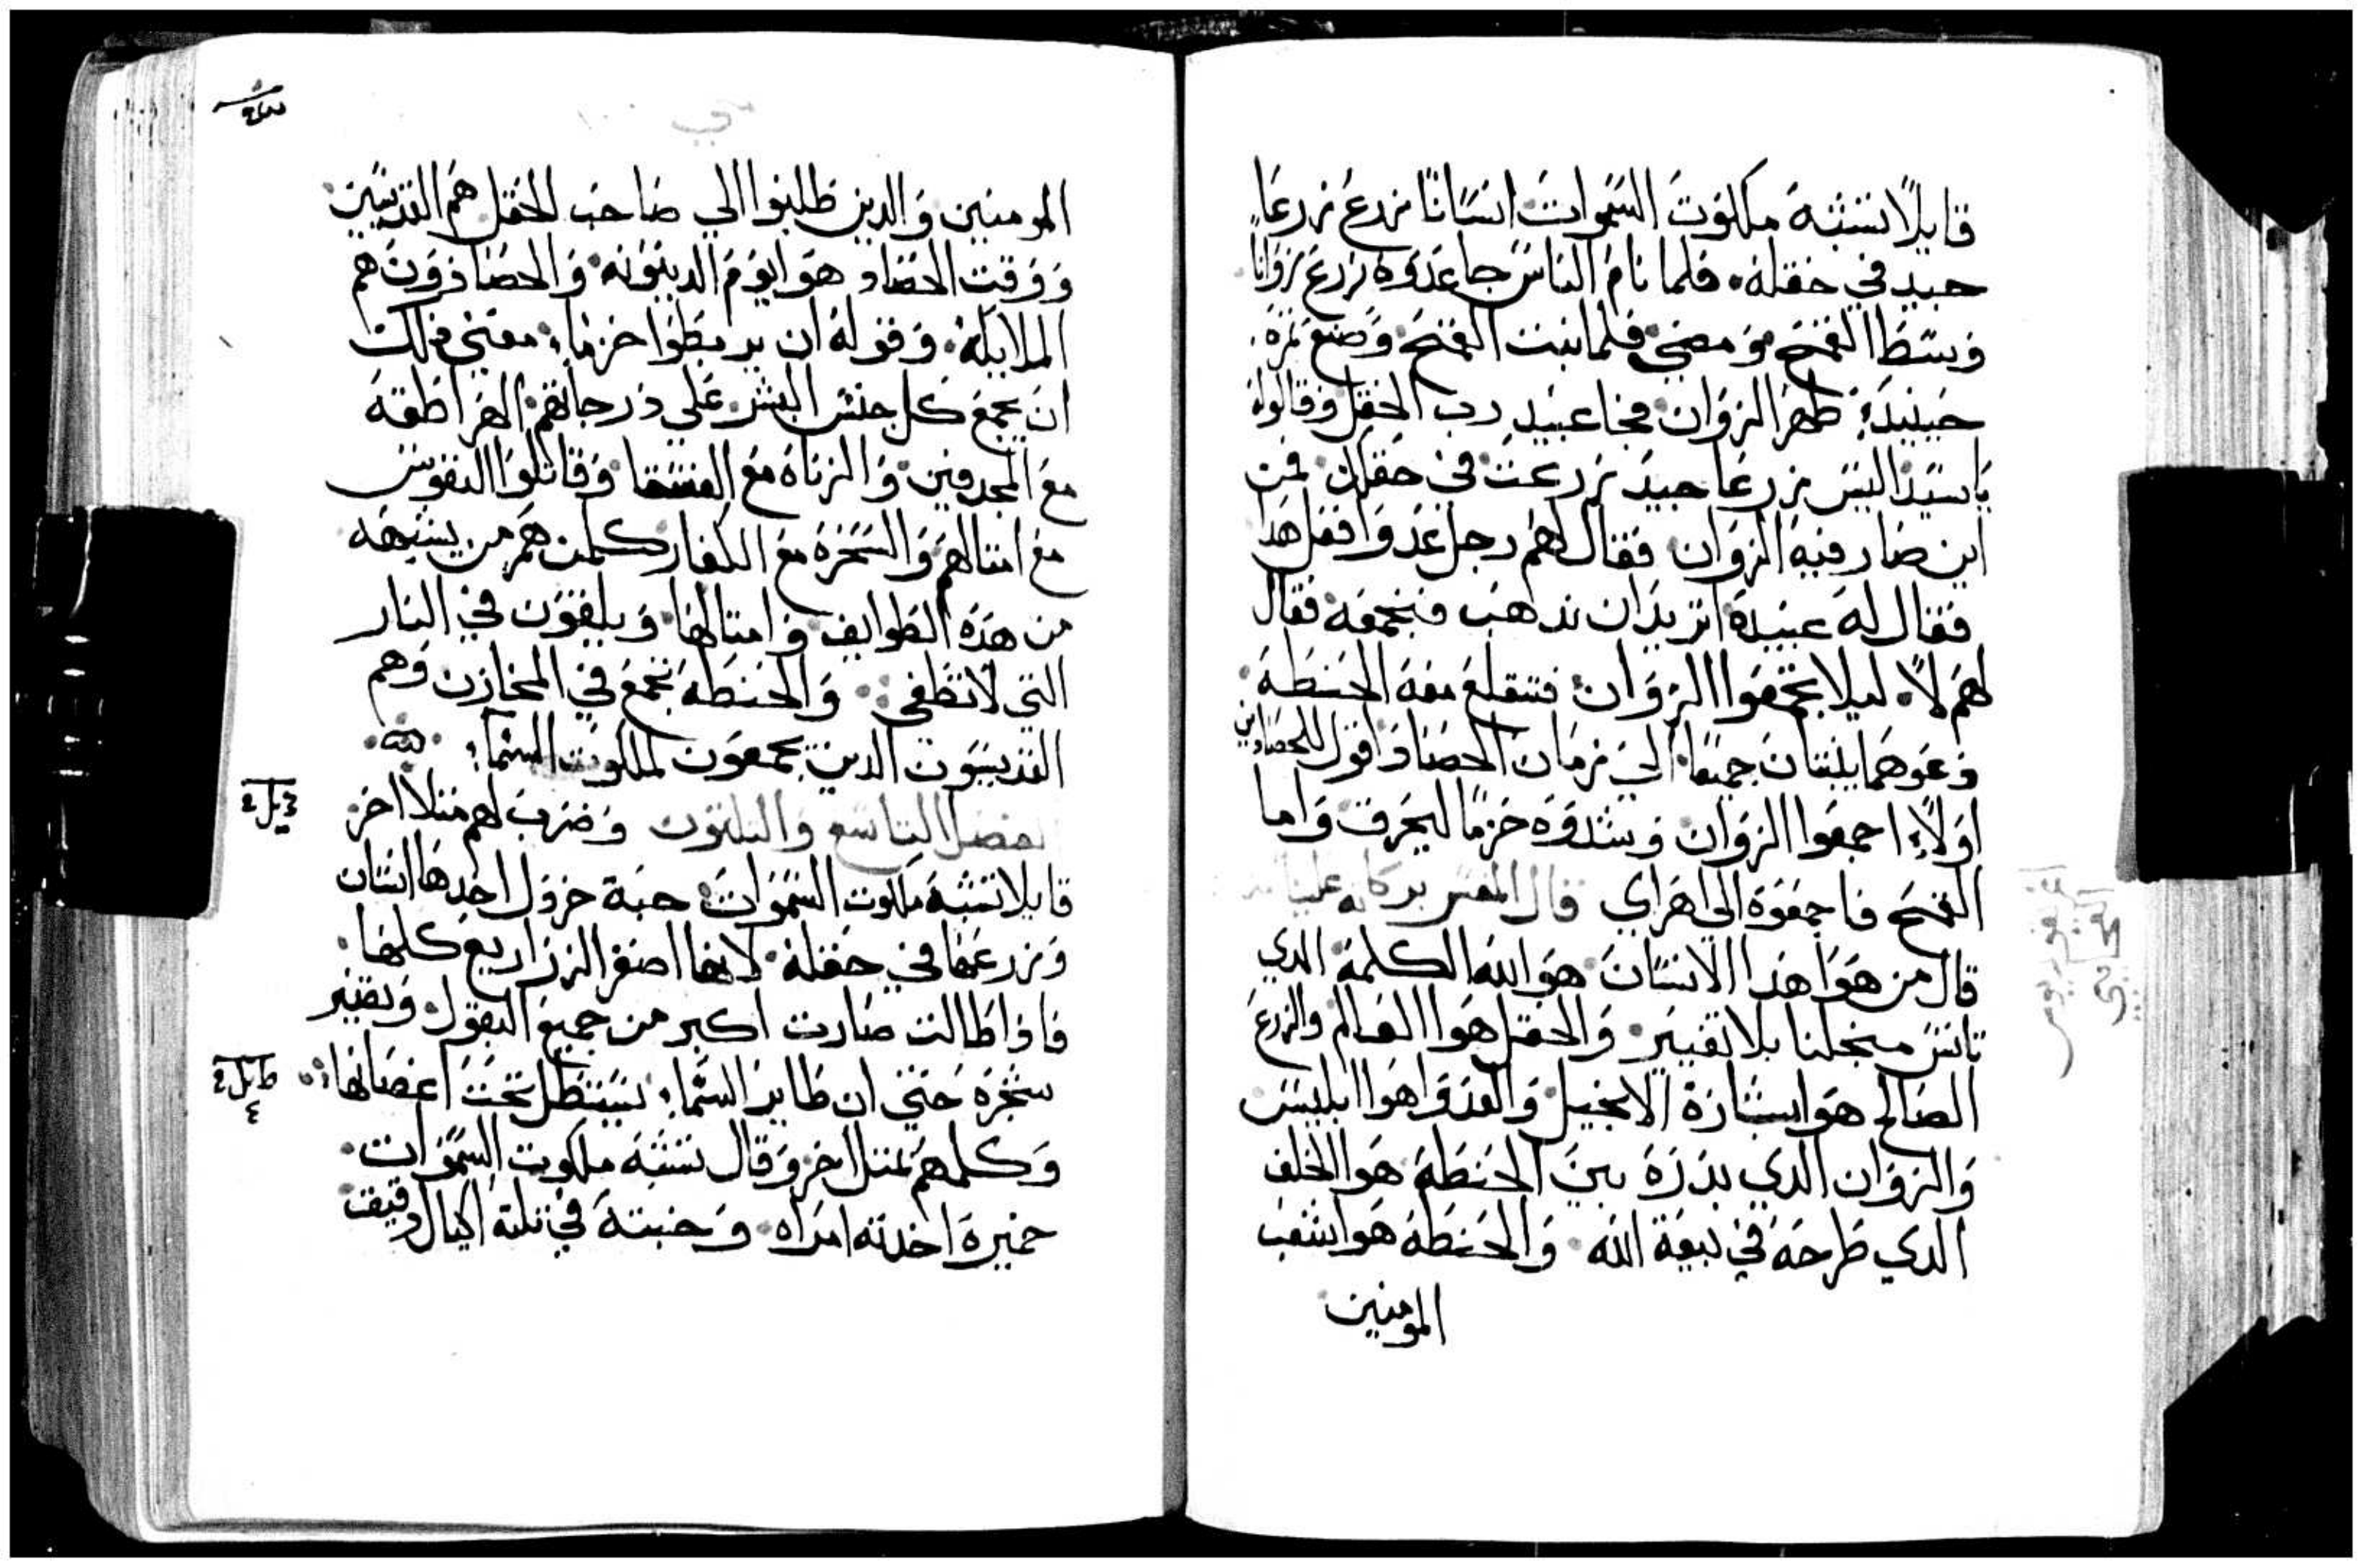 قايلاً تشبه ملكوت السموات انسانًا زرع زرعًا
جيد في حقله. فلما نام الناس جا عدوه زرع زوانًا
وسط القمح ومضي فلما نبت القمح وصنع ثمره.
حينيدٍ ظهر الزوان فجا عبيد رب الحقل وقالوا له
ياسيد اليس زرعا جيد زرعت في حقلك فمن
اين صار فيه الزوان فقال لهم رجل عدوا فعل هدا
فقال له عبيده اتريد ان ندهب فنجمعه فقال
لهم لا. ليلا تجمعوا الزوان فتنقلع معه الحنطة.
دعوهما ينبتان جميعا. الي زمان الحصاد واقول للحصادين
اولاً اجمعوا الزوان وشدوه حزمًا ليحرق واما
القمح فاجمعوه الي اهراي قال المفسر بركاته علينا
قال من هوا هدا الانسان هوا الله الكلمة الدي
تانس منجلنا بلا تغيير. والحقل هوا العالم والزرع
الصالح هوا بشارة الانجيل والعدوا هوا ابليس
والزوان الدي بدره بين الحنطة هوا الخلف
الدي طرحه في بيعة الله. والحنطة هوا شعب
المومنين
المومنين والدين طلبوا الي صاحب الحقل هم القديسين
ووقت الحصاد هوا يوم الدينونه والحصادون هم
الملايكة. وقوله ان يربطوا حزما. معني دلك
ان يجمع كل جنس البشر علي درجاتهم الهراطقه
مع المجدفين والزناه مع الفسقا وقاتلوا النفوس
مع امتالهم والسحره مع الكفار كلمن هم من يشبهه
من هده الطوايف وامتالها ويلقون في النار
التي لا تطفي. والحنطه تجمع في المخازن وهم
القديسون الدين يجمعون لملكوت السما
الفصل التاسع والتلتون وضرب لهم متلا اخر
قايلا تشبه ملكوت السموات حبة خردل اخدها انسان
وزرعها في حقله. لانها اصغر الزراريع كلها.
فادا طالت صارت اكبر من جميع البقول وتصير
شجره حتي ان طاير السما يستظل تحت اغصانها
وكلمهم بمتل اخر وقال تشبه ملكوت السموات.
خميرة اخدته امراه وخبته في تلتة اكيال دقيق